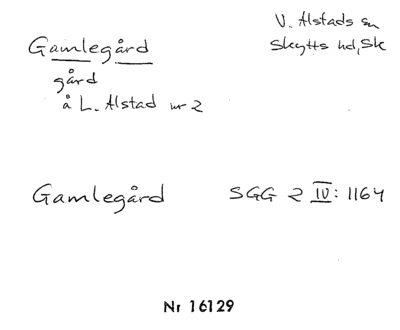 Gamlegård
V. Alstads sn
Skytts hd, Sk
gård
å L. Alstad nr 2
Gamlegård
SGG 2 IV: 1164
Nr 16129